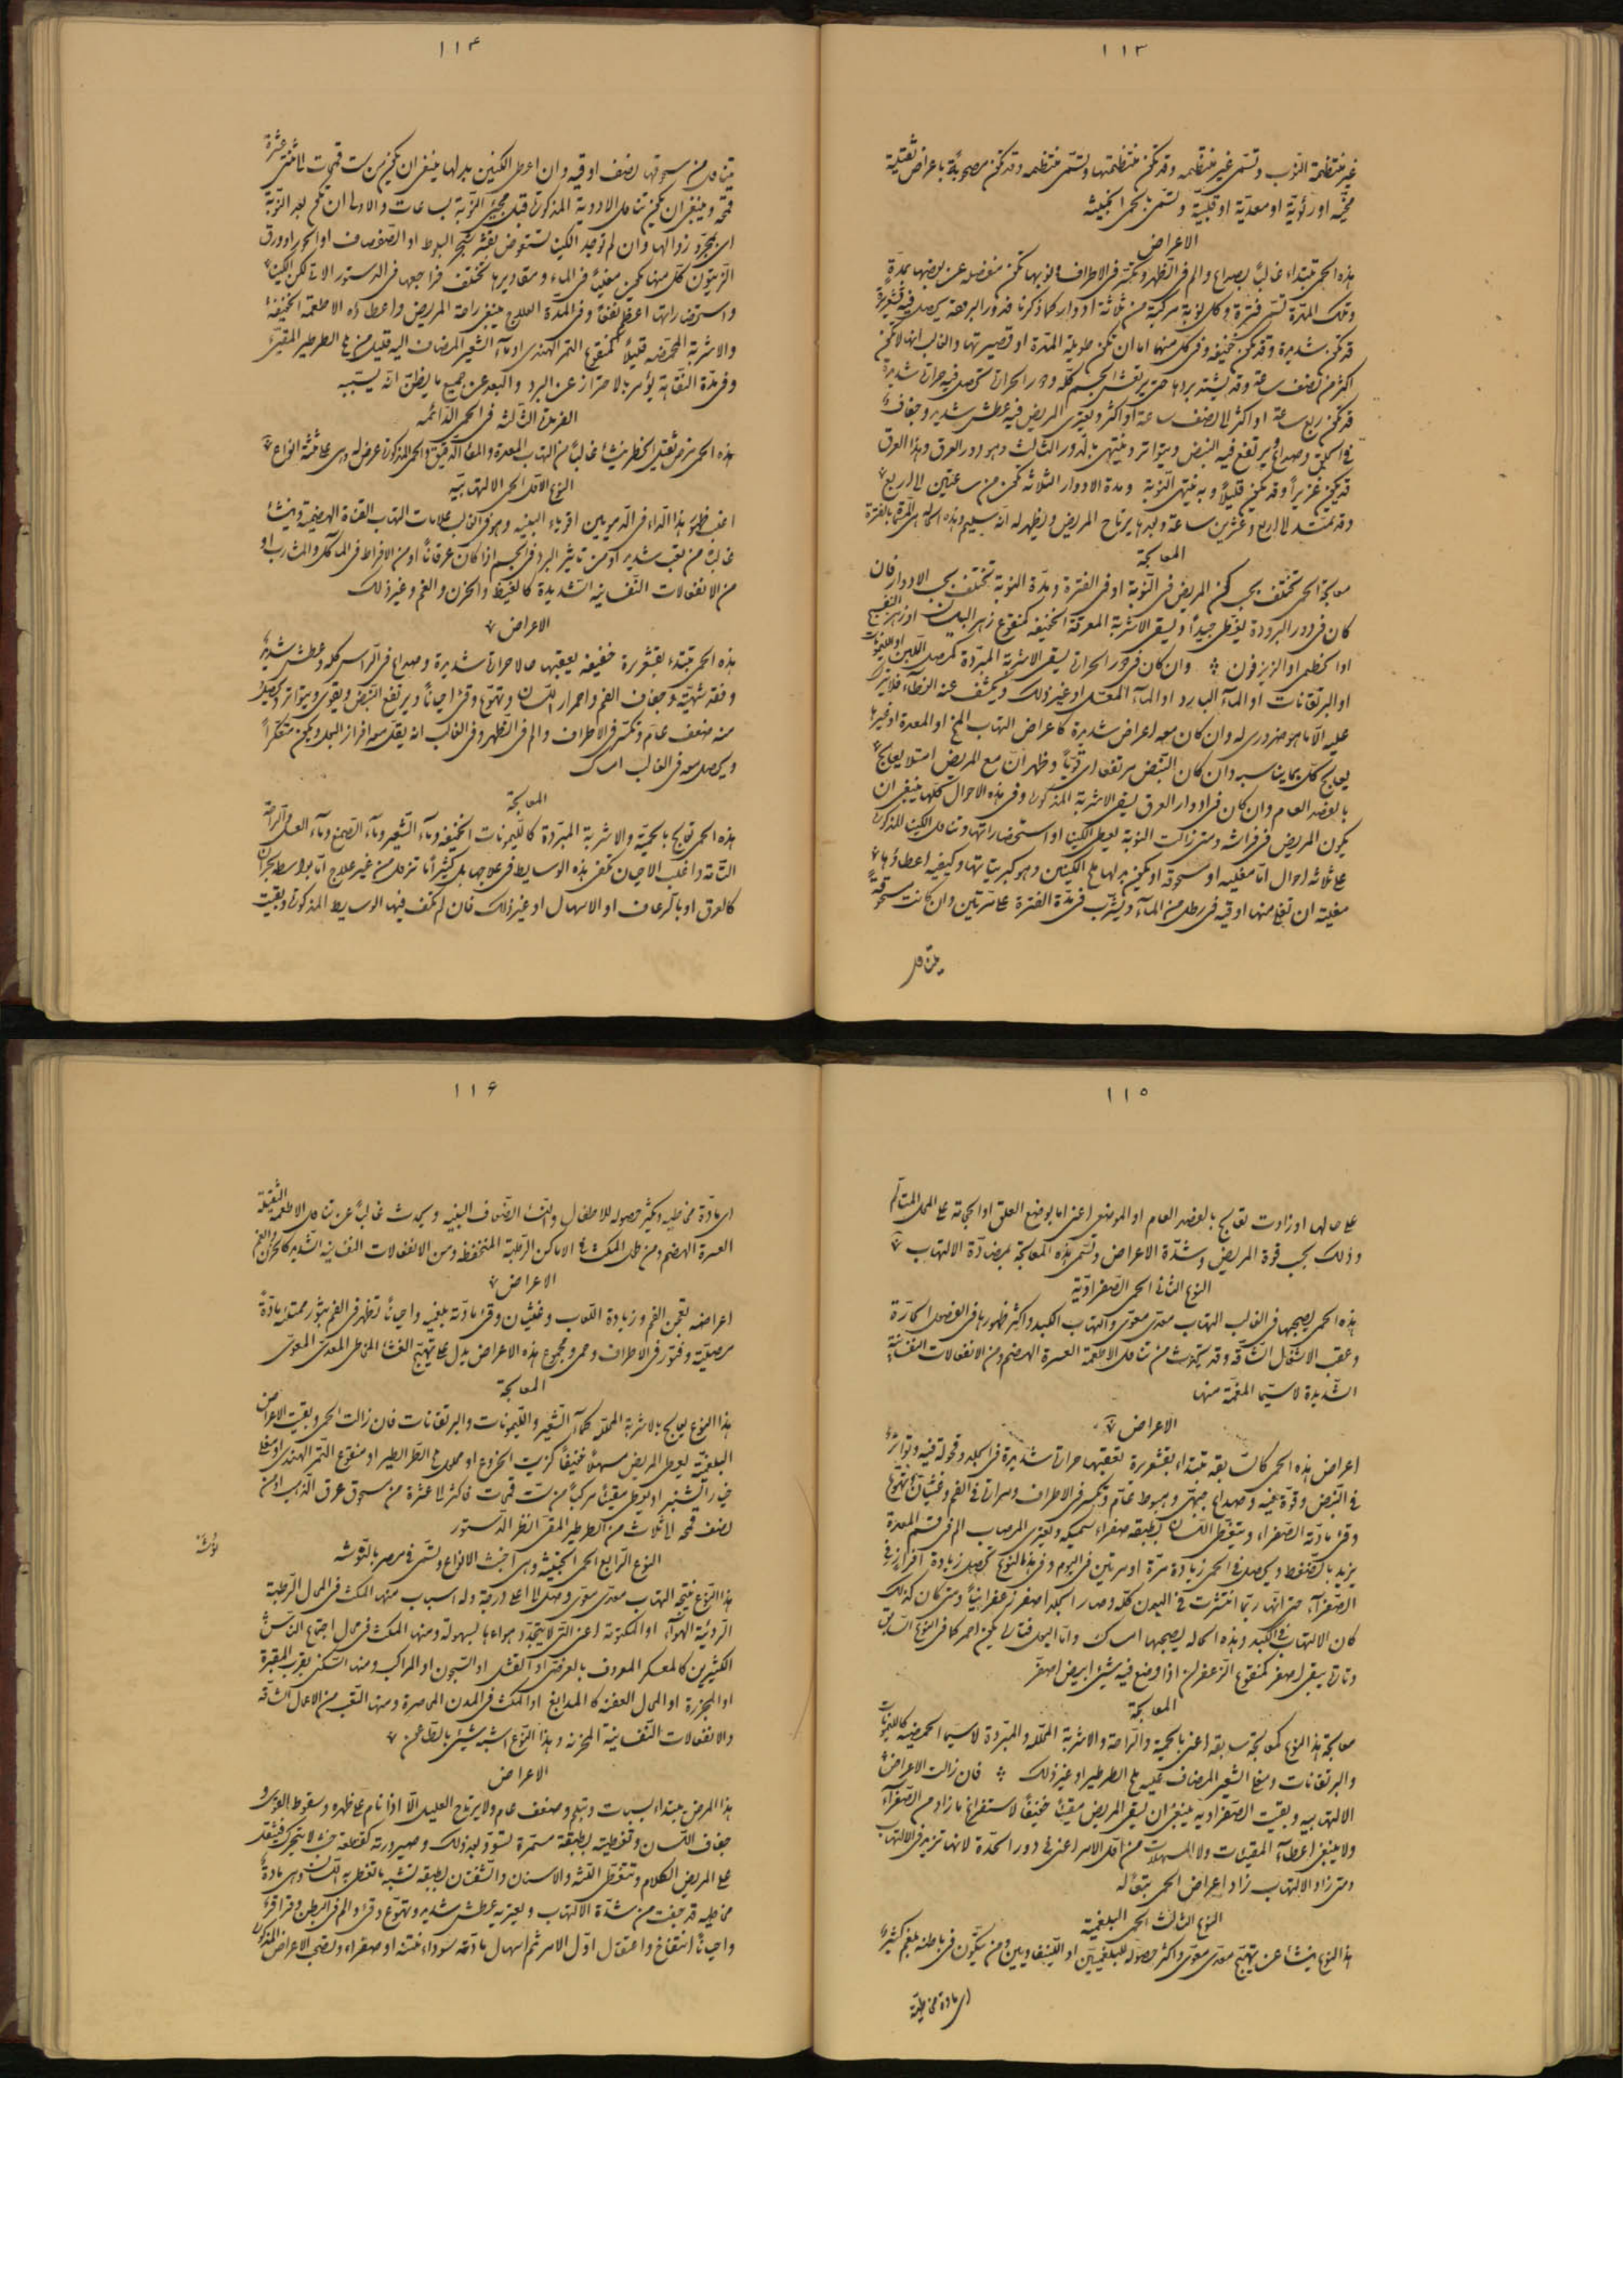 ١١٣
غير منتظمة النوب وتسمى غير منتظمه وقد تكن منتظمتها وتسمى منتظمه وقد تكن مصحوبة باعراض ثقيلة
مخية او رئوية او معدية او قلبية وتسمى بالحمى الخبيثه
الاعراض
هذه الحمى تبتداء غالباً بصداع والم فى الظهر وتكسر فى الاطراف ونوبها تكن منفصله عن بعضها بمدة
وتلك المدة تسمى فترة وكل نوبة مركبة من ثلاثة ادوار كما ذكرنا فدور البرودة يحصل فيه قشعريرة
قد تكن شديدة وقد تكن خفيفه وفى كل منهما اما ان تكن طويلة المدة او قصيرتها والغالب انها لا تكن
اكثر من نصف ساعة وقد يشتد بردها حتى يرتعش الجسم كله ودور الحرارة تحصل فيه حرارة شديدة
قد تكن ربع ساعة او اكثر الى نصف ساعة او اكثر ويعترى المريض فيه عطش شديد وجفاف
فى الحلق وصداع ويرتفع فيه النبض ويتواتر وينتهى بالدور الثالث وهو دور العرق وهذا العرق
قد يكن غزيراً وقد يكن قليلاً وبه تنتهى النوبة ومدة الادوار الثلاثة تكن من ساعتين الى اربع
وقد تمتد الى اربع وعشرين ساعة وبعدها يرتاح المريض ويظهر له انه سليم وهذه الحاله هى المسماة بالفترة
المعالجة
معالجة الحمى تختلف بحسب كن المريض فى النوبة او فى الفترة ومدة النوبة تختلف بحسب الادوار فان
كان فى دور البرودة يغطى جيداً ويسقى الاشربة المعرقة الخفيفه كمنقوع زهر البيلسان او زهر البنفسج
او الخطمى او الزيزفون وان كان فى دور الحرارة يسقى الاشربة المبردة كمصل اللبن او الليمونات
او البرتقانات او الماء البارد او الماء المعسل او غير ذلك ويخفف عنه الغطاء فلا يترك
عليه الا ما هو ضرورى له وان كان معه اعراض شديدة كاعراض التهاب المخ او المعدة او غيرها
يعالج كل بما يناسبه وان كان النبض مرتفعا اى قوياً وظهر ان مع المريض امتلاء يعالج
بالفصد العام وان كان فى ادوار العرق يسقى الاشربة المذكورة وفى هذه الاحوال كلها ينبغى ان
يكون المريض فى فراشه ومتى زالت النوبة يعطى الكينا او استحضاراتها وتناول الكينا المذكورة
على ثلاثة احوال اما مغليه او مسحوقة او يكن بدلها ملح الكينين وهو كبريتاتها وكيفية اعطاؤها
مغلية ان تغلى منها اوقيه فى رطل من الماء ويشرب فى مدة الفترة على مرتين وان كانت مسحوقة
يتناول
١١٤
يتناول من مسحوقها نصف اوقيه وان اعطى الكينين بدلها ينبغى ان يكن من ست قمحات الى اثنتى عشرة
قمحة وينبغى ان يكن تناول الادوية المذكورة قبل مجيئ النوبة بساعات والاولى ان تكن بعد النوبة
اى بمجرد زوالها وان لم توجد الكينا تستعوض بقشر شجر البلوط او الصفصاف او الحور او ورق
الزيتون كل منها يكن مغلياً فى الماء ومقاديرها تختلف فراجعها فى الدستور الاتى لكن الكينا
واستحضاراتها اعظم نفعاً وفى المدة العلاج ينبغى راحة المريض واعطاءه الاطعمة الخفيفة
والاشربة المحمضه قليلاً كمنقوع التمر الهندى او ماء الشعير المضاف اليه قليل من ملح الطرطير المقيئ
وفى مدة النقاهة يؤمر بالاحتراز عن البرد والبعد عن جميع ما يظن انه يسببه
الفريدة الثالثة فى الحمى الدائمه
هذه الحمى مرض ثقيل خطر ينشاء غالباً من التهاب المعدة والمعاء الدقيق والحمى المذكورة عرض له وهى على خمسة انواع
النوع الاول الحمى الالتهابيه
اغلب ظهور هذا الداء فى الدمويين اقوياء البنيه وهو فى الغالب علامات التهاب القناة الهضمية وينشاء
غالباً من تعب شديد او من تاثير البرد فى الجسم اذا كان عرقاناً او من الافراط فى المأكل والمشرب او
من الانفعالات النفسانيه الشديدة كالغيظ والحزن والغم وغير ذلك
الاعراض
هذه الحمى تبتداء بقشعريرة خفيفه يعقبها حالا حرارة شديدة وصداع فى الراس كله وعطش شديد
وفقد شهية وجفاف الفم واحمرار اللسان وتهوع وقئ احياناً ويرتفع النبض ويقوى ويتواتر ويحصل
منه ضعف عام وتكسر فى الاطراف والم فى الظهر وفى الغالب انه يقل معه افراز البول ويكن متعكراً
ويحصل معه فى الغالب امساك
المعالجة
هذه الحمى تعالج بالحمية والاشربة المبردة كالليمونات الخفيفه وماء الشعير وماء الصمغ وماء العسل والراحة
التامة واغلب الاحيان تكفى هذه الوسايط فى علاجها بل كثيراً ما تزول من غير علاج اما بواسطة بحران
كالعرق او بالرعاف او الاسهال او غير ذلك فان لم تكف فيها الوسايط المذكورة وبقيت
١١٥
على حالها او زادت تعالج بالفصد العام او الموضعى اعنى اما بوضع العلق او الحجامة على المحل المتألم
وذلك بحسب قوة المريض وشدة الاعراض وتسمى هذه المعالجة بمضادة الالتهاب
النوع الثانى الحمى الصفراوية
هذه الحمى يصحبها فى الغالب التهاب معدى معوى والتهاب الكبد واكثر ظهورها فى الفصول الحارة
وعقب الاشغال الشاقه وقد تحدث من تناول الاطعمة العسرة الهضم ومن الانفعالات النفسانية
الشديدة لا سيما المغمة منها
الاعراض
اعراض هذه الحمى كالسابقه تبتداء بقشعريرة تعقبها حرارة شديدة فى الجلد وقحولة فيه وتواتر
فى النبض وقوة فيه وصداع جبهى وهبوط عام وتكسر فى الاطراف ومرارة فى الفم وغثيان وتهوع
وقئ مادته الصفراء ويتغطى اللسان بطبقه صفراء سميكه ويعترى المصاب الم فى قسم المعدة
يزيد بالضغط ويحصل فى الحمى زيادة مرة او مرتين فى اليوم وفى هذا النوع تحصل زيادة افراز فى
الصفراء حتى انها ربما انتشرت فى البدن كله وصار الجلد اصفر زعفرانياً ومتى كان كذلك
كان الالتهاب فى الكبد وهذه الحاله يصحبها امساك واما البول فتارة يكن احمر كما فى النوع السابق
وتارة يبقى اصفر كمنقوع الزعفران اذا وضع فيه شئ ابيض اصفر
المعالجة
معالجة هذا النوع كمعالجة سابقه اعنى بالحمية والراحة والاشربة المحلله والمبردة لا سيما الحمضيه كالليمونات
والبرتقانات ومغلى الشعير المضاف عليه ملح الطرطير او غير ذلك فان زالت الاعراض
الالتهابيه وبقيت الصفراويه ينبغى ان يسقى المريض مقيئا خفيفاً لاستفراغ ما زاد من الصفراء
ولا ينبغى اعطاء المقيئات ولا المسهلات من اول الامر اعنى فى دور الحدة لانها تزيد فى الالتهاب
ومتى زاد الالتهاب زاد اعراض الحمى تبعاً له
النوع الثالث الحمى البلغمية
هذا النوع ينشاء عن تهيج معدى معوى واكثر حصوله للبلغميين او اللينفاويين ومن يتكون فى باطنه بلغم كثير
اى مادة مخاطية
١١٦
اى مادة مخاطيه ويكثر حصوله للاطفال والنساء الضعاف البنيه ويحدث غالباً عن تناول الاطعمة الثقيلة
العسرة الهضم ومن طول المكث فى الاماكن الرطبة المنخفضة ومن الانفعالات النفسانيه الشديدة كالحزن والغم
الاعراض
اعراضه تعجن الفم وزيادة اللعاب وغثيان وقئ مادته بلغميه واحياناً تظهر فى الفم بثور ممتلئه مادة
مصلية وفتور فى الاطراف وحمى ومجموع هذه الاعراض يدل على تهيج الغشاء المخاطى المعدى المعوى
المعالجة
هذا النوع يعالج بالاشربة المحلله كماء الشعير والليمونات والبرتقانات فان زالت الحمى وبقيت الاعراض
البلغمية يعطى المريض مسهلاً خفيفاً كزيت الخروع او محلول ملح الطرطير او منقوع التمر الهندى او مغلى
خيار الشنبر او يعطى مقيئاً مركباً من ست قمحات فاكثر الى عشرة من مسحوق عرق الذهب او من
نصف قمحه الى ثلاث من الطرطير المقيئ انظر الدستور
النوع الرابع الحمى الخبيثه وهى اخبث الانواع وتسمى فى مصر بالنوشه
نوشه
هذا النوع نتيجة التهاب معدى معوى وصل الى اعلى درجة وله اسباب منها المكث فى المحال الرطبة
الرديئة الهواء او المكتومة اعنى التى لا يتجدد هواءها بسهوله ومنها المكث فى محال اجتماع الناس
الكثيرين كالمعسكر المعروف بالعرضى او القشل او السجون او المراكب ومنها السكنى بقرب المقبرة
او المجزرة او المحال العفنه كالمدابغ او المكث فى المدن المحاصرة ومنها التعب من الاعمال الشاقه
والانفعالات النفسانية المحزنه وهذا النوع اشبه شئ بالطاعون
الاعراض
هذا المرض يبتداء بسبات وتبلم وضعف عام ولا يرتاح العليل الا اذا نام على ظهره وسقوط القوى و
جفاف اللسان وتغطيته بطبقة مستمرة تسود بعد ذلك وصيرورته كقطعة خشب لا يتحرك فيثقل
على المريض الكلام وتتغطى اللثه والاسنان والشفتان بطبقه تشبه ما تغطى به اللسان وهى مادة
مخاطيه قد جفت من شدة الالتهاب ويعتريه عطش شديد وتهوع وقئ والم فى البطن وقراقر
واحياناً انتفاخ واعتقال اول الامر ثم اسهال مادته سوداء منتنه او صفراء وتصحب الاعراض المذكورة